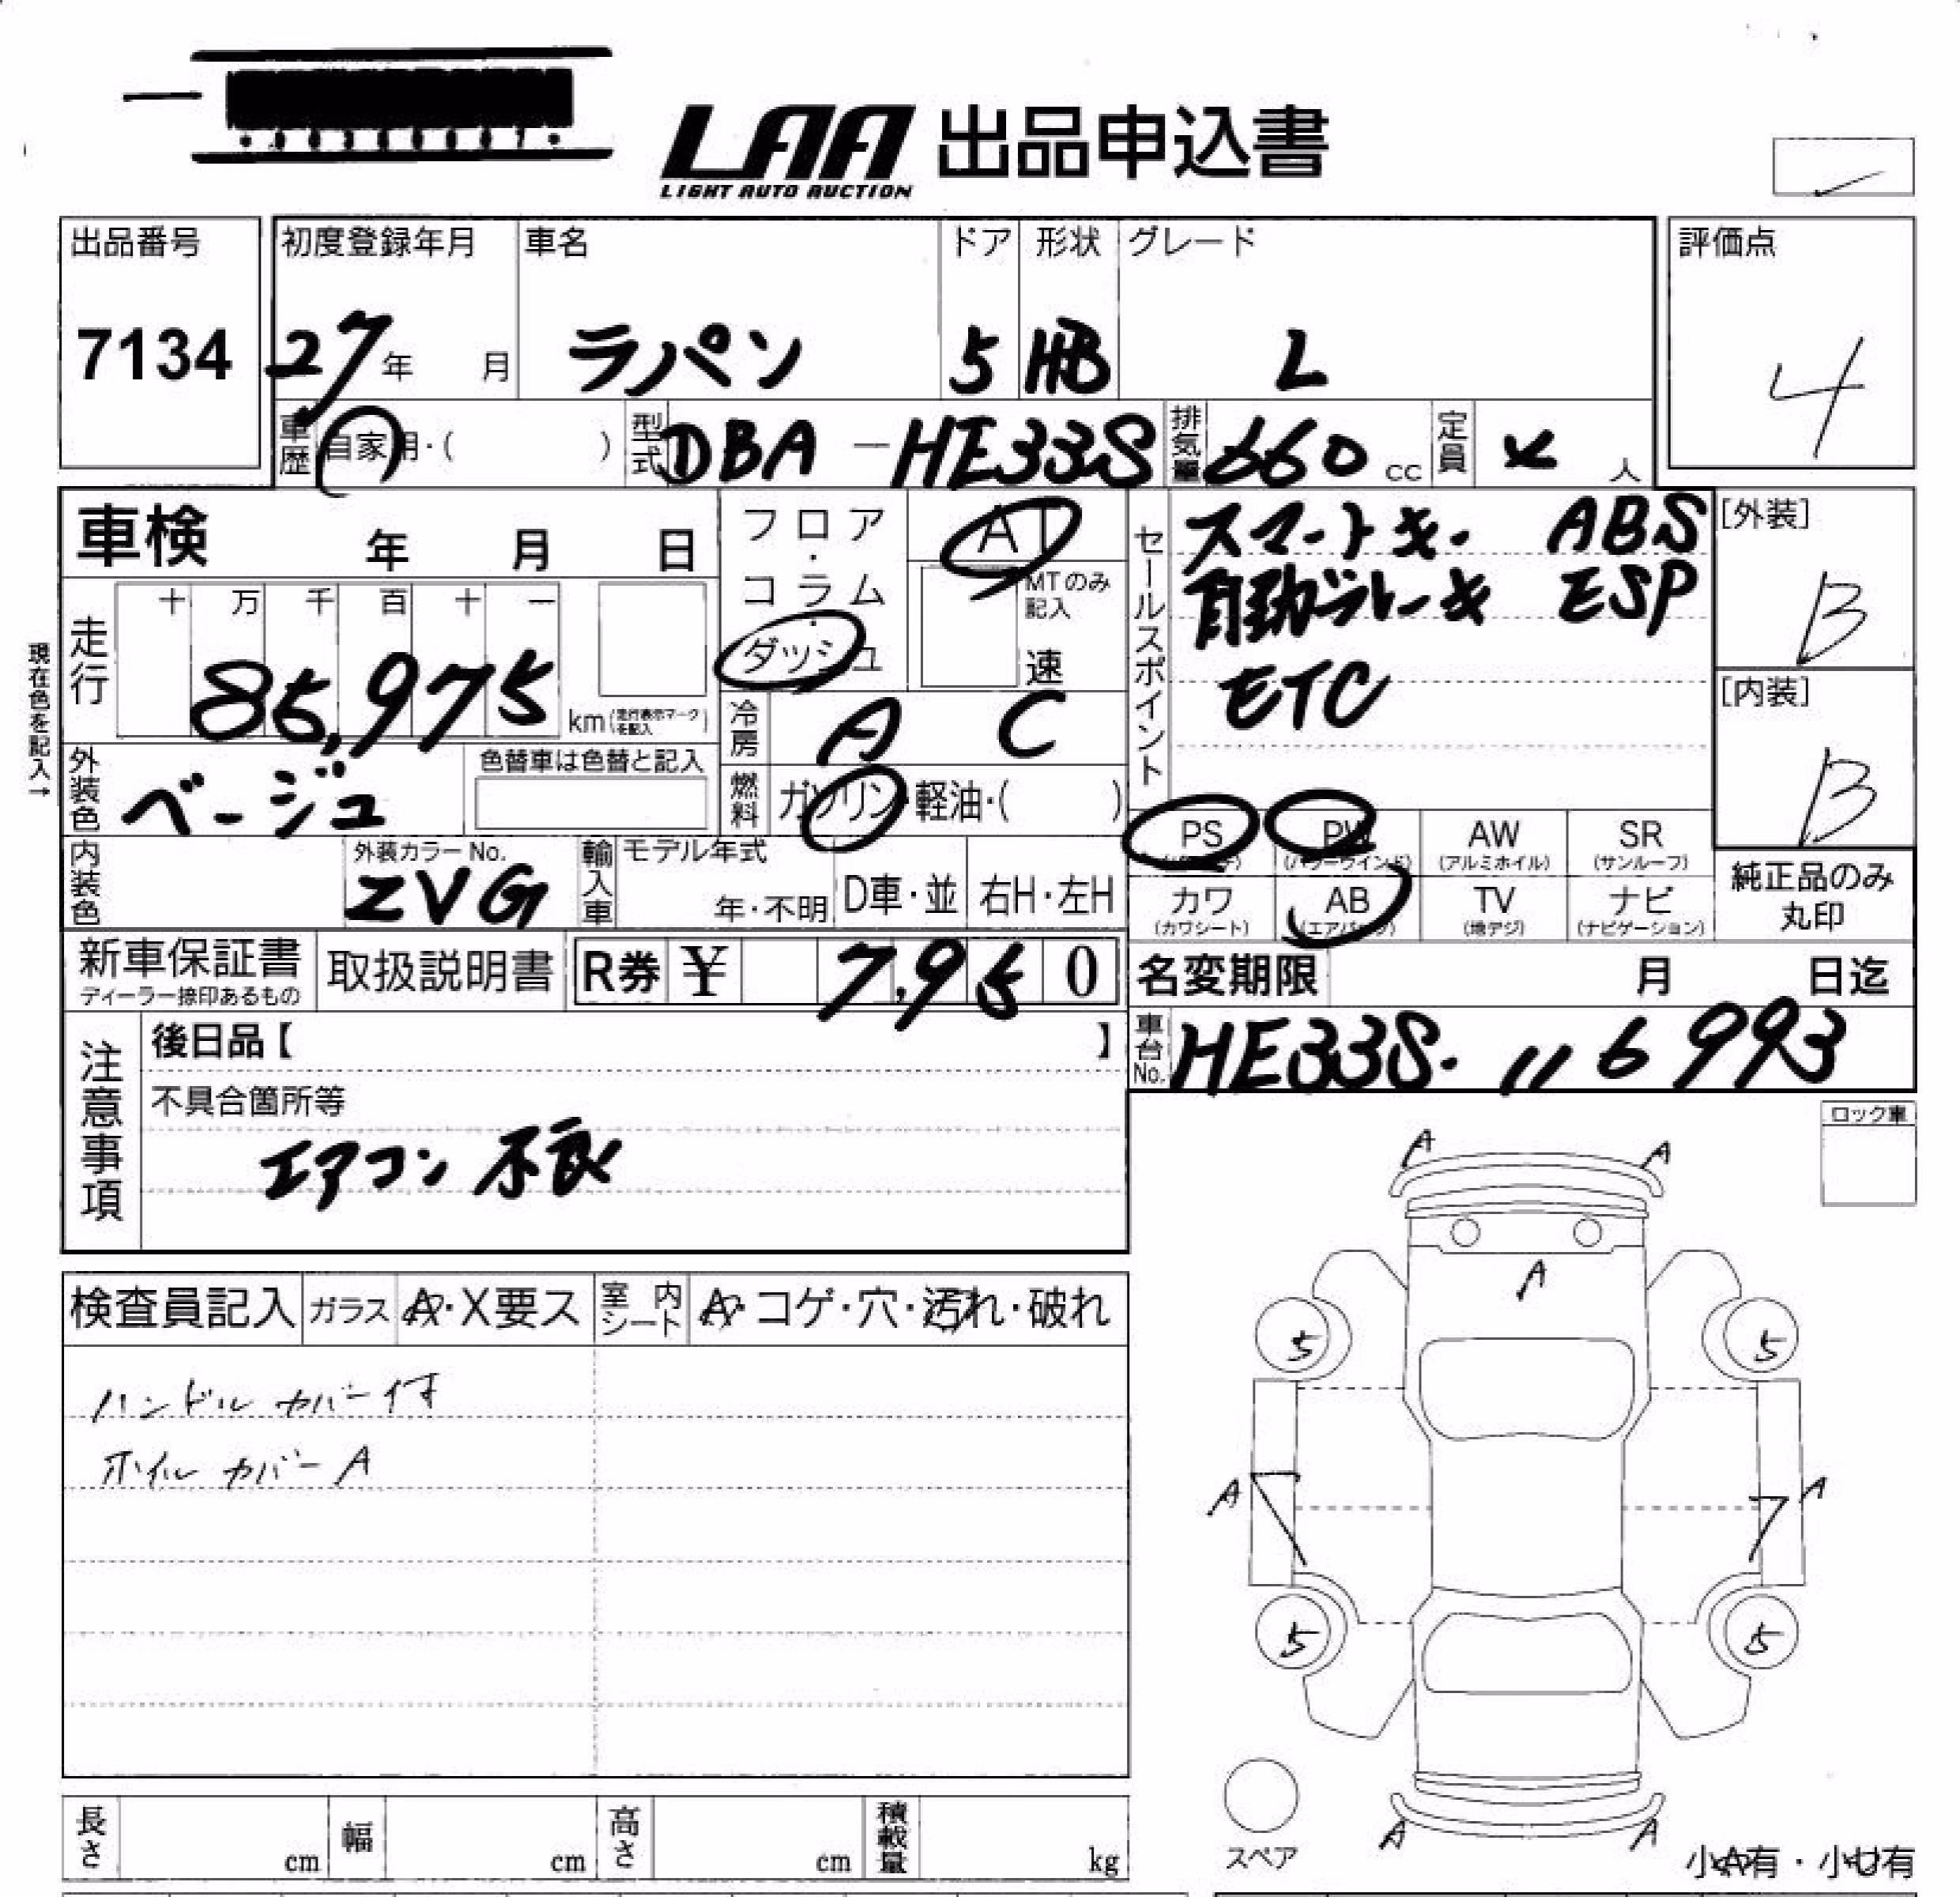 LAA 出品申込書
LIGHT AUTO AUCTION
出品番号 初度登録年月 車名 ドア 形状 グレード 評価点
7134 27年 月 ラパン 5 HB L 4
車歴 自家用・( ) 型式 DBA-HE33S 排気量 660 cc 定員 4 人
車検 年 月 日
フロア・コラム・ダッシュ
AT
MTのみ記入
速
セールスポイント
スマートキー ABS
自動ブレーキ ESP
ETC
[外装]
B
[内装]
B
現在色を記入→
走行 十 万 千 百 十 一
85,975 km(走行表示マークを記入)
冷房 A C
外装色 ベージュ 色替車は色替と記入
燃料 ガソリン・軽油・( )
PS AW SR
PW
(アルミホイル) (サンルーフ)
(パワーウインド)
内装色 外装カラーNo. ZVG
輸入車 モデル年式 年・不明 D車・並 右H・左H
カワ AB TV ナビ
(カワシート) (エアバッグ) (地デジ) (ナビゲーション)
純正品のみ
丸印
新車保証書 取扱説明書 R券 ¥ 7,950
ディーラー捺印あるもの
名変期限 月 日迄
車台No. HE33S-116993
注意事項
後日品【 】
不具合箇所等
エアコン 不良
ロック車
A A
A
5 5
A A
5 5
A A
スペア
小A有・小U有
検査員記入 ガラス A・X要ス 室内シート A・コゲ・穴・汚れ・破れ
ハンドルカバー付
ホイルカバーA
長さ cm 幅 cm 高さ cm 積載量 kg